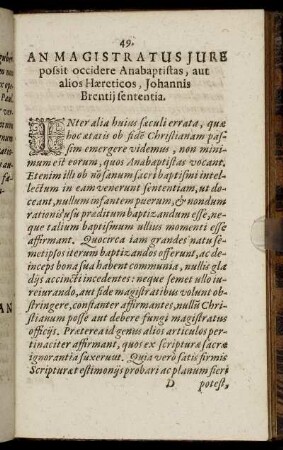 49.
AN MAGISTRATUS JURE
possit occidere Anabaptistas, aut
alios Hæreticos, Johannis
Brentij sententia.
INter alia huius sæculi errata, quæ
hoc ætatis ob fidē Christianam pas-
sim emergere videmus, non mini-
mum est eorum, quos Anabaptistas vocant,
Etenim illi ob nō sanum sacri baptismi intel-
lectum in eam venerunt sententiam, ut do-
ceant, nullum infantem puerum, & nondum
rationis usu præditum baptizandum esse, ne-
que talium baptismum ullius momenti esse
affirmant. Quocirca iam grandes natu se-
metipsos iterum baptizādos offerunt, ac de-
inceps bona sua habent communia, nullis gla-
dijs accincti incedentes: neque semet ullo iu-
reiurando, aut fide magistratibus volunt ob-
stringere, constanter affirmantes, nullū Chri-
stianum posse aut debere fungi magistratus
officijs. Præterea id genus alios articulos per-
tinaciter affirmant, quos ex scripturæ sacræ
ignorantia suxerunt. Quia verò satis firmis
Scripturæ testimonijs probari ac planum fieri
D potest,